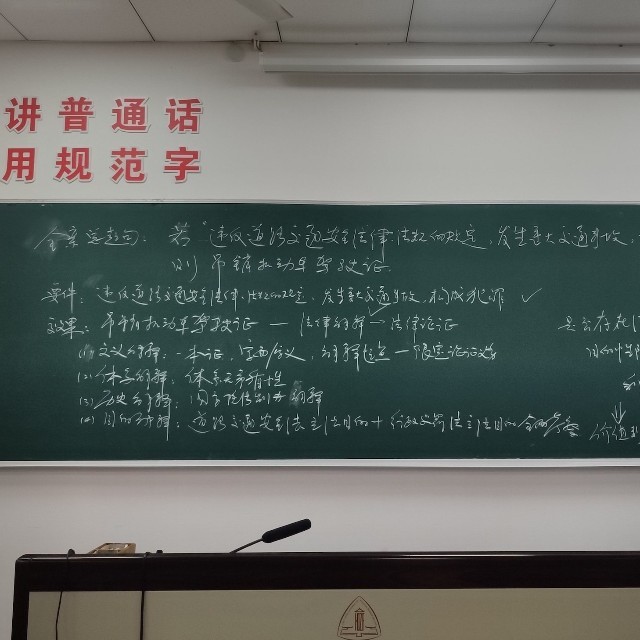 讲普通话
用规范字
全案连起句：若“违反道路交通安全法律法规的规定，发生重大交通事故，
则 吊销机动车驾驶证
要件：违反道路交通安全法律、法规的规定，发生重大交通事故，构成犯罪 ✓
效果：吊销机动车驾驶证 — 法律解释 → 法律论证
是否存在
(1) 文义解释：一本证，解释起点—限定论证
(2) 体系解释：体系无矛盾性
(3) 历史解释：解释
(4) 目的解释：道路交通安全法立法目的+行政处罚法立法目的
价值